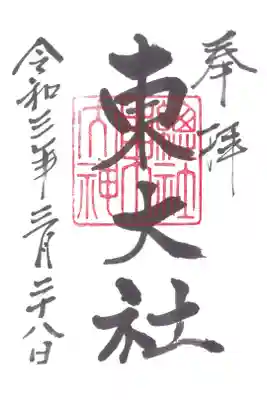 奉拝
東大社
令和三年三月二十八日
總社
大神